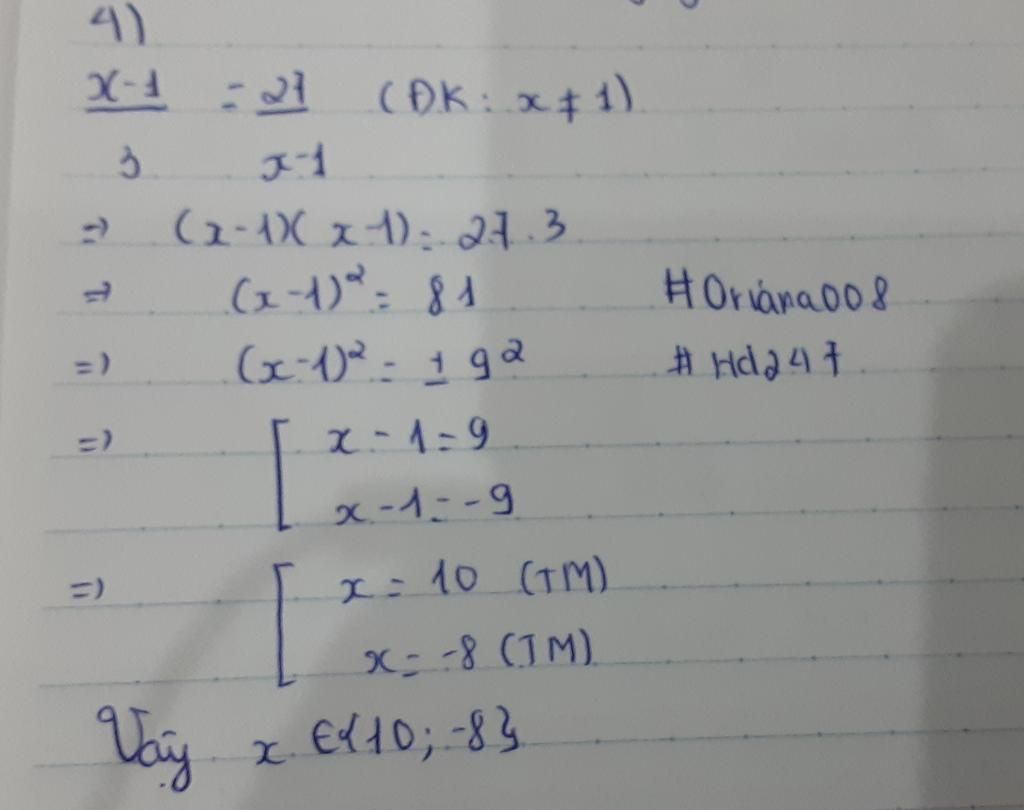 4)
x-1 = 27 (ĐK: x ≠ 1)
3 x-1
=> (x-1)(x-1) = 27.3
=> (x-1)² = 81 #Oriana008
=> (x-1)² = ± 9² # Hd247
=> [ x - 1 = 9
x - 1 = -9
=> [ x = 10 (TM)
x = -8 (TM)
Vậy x ∈ {10; -8}